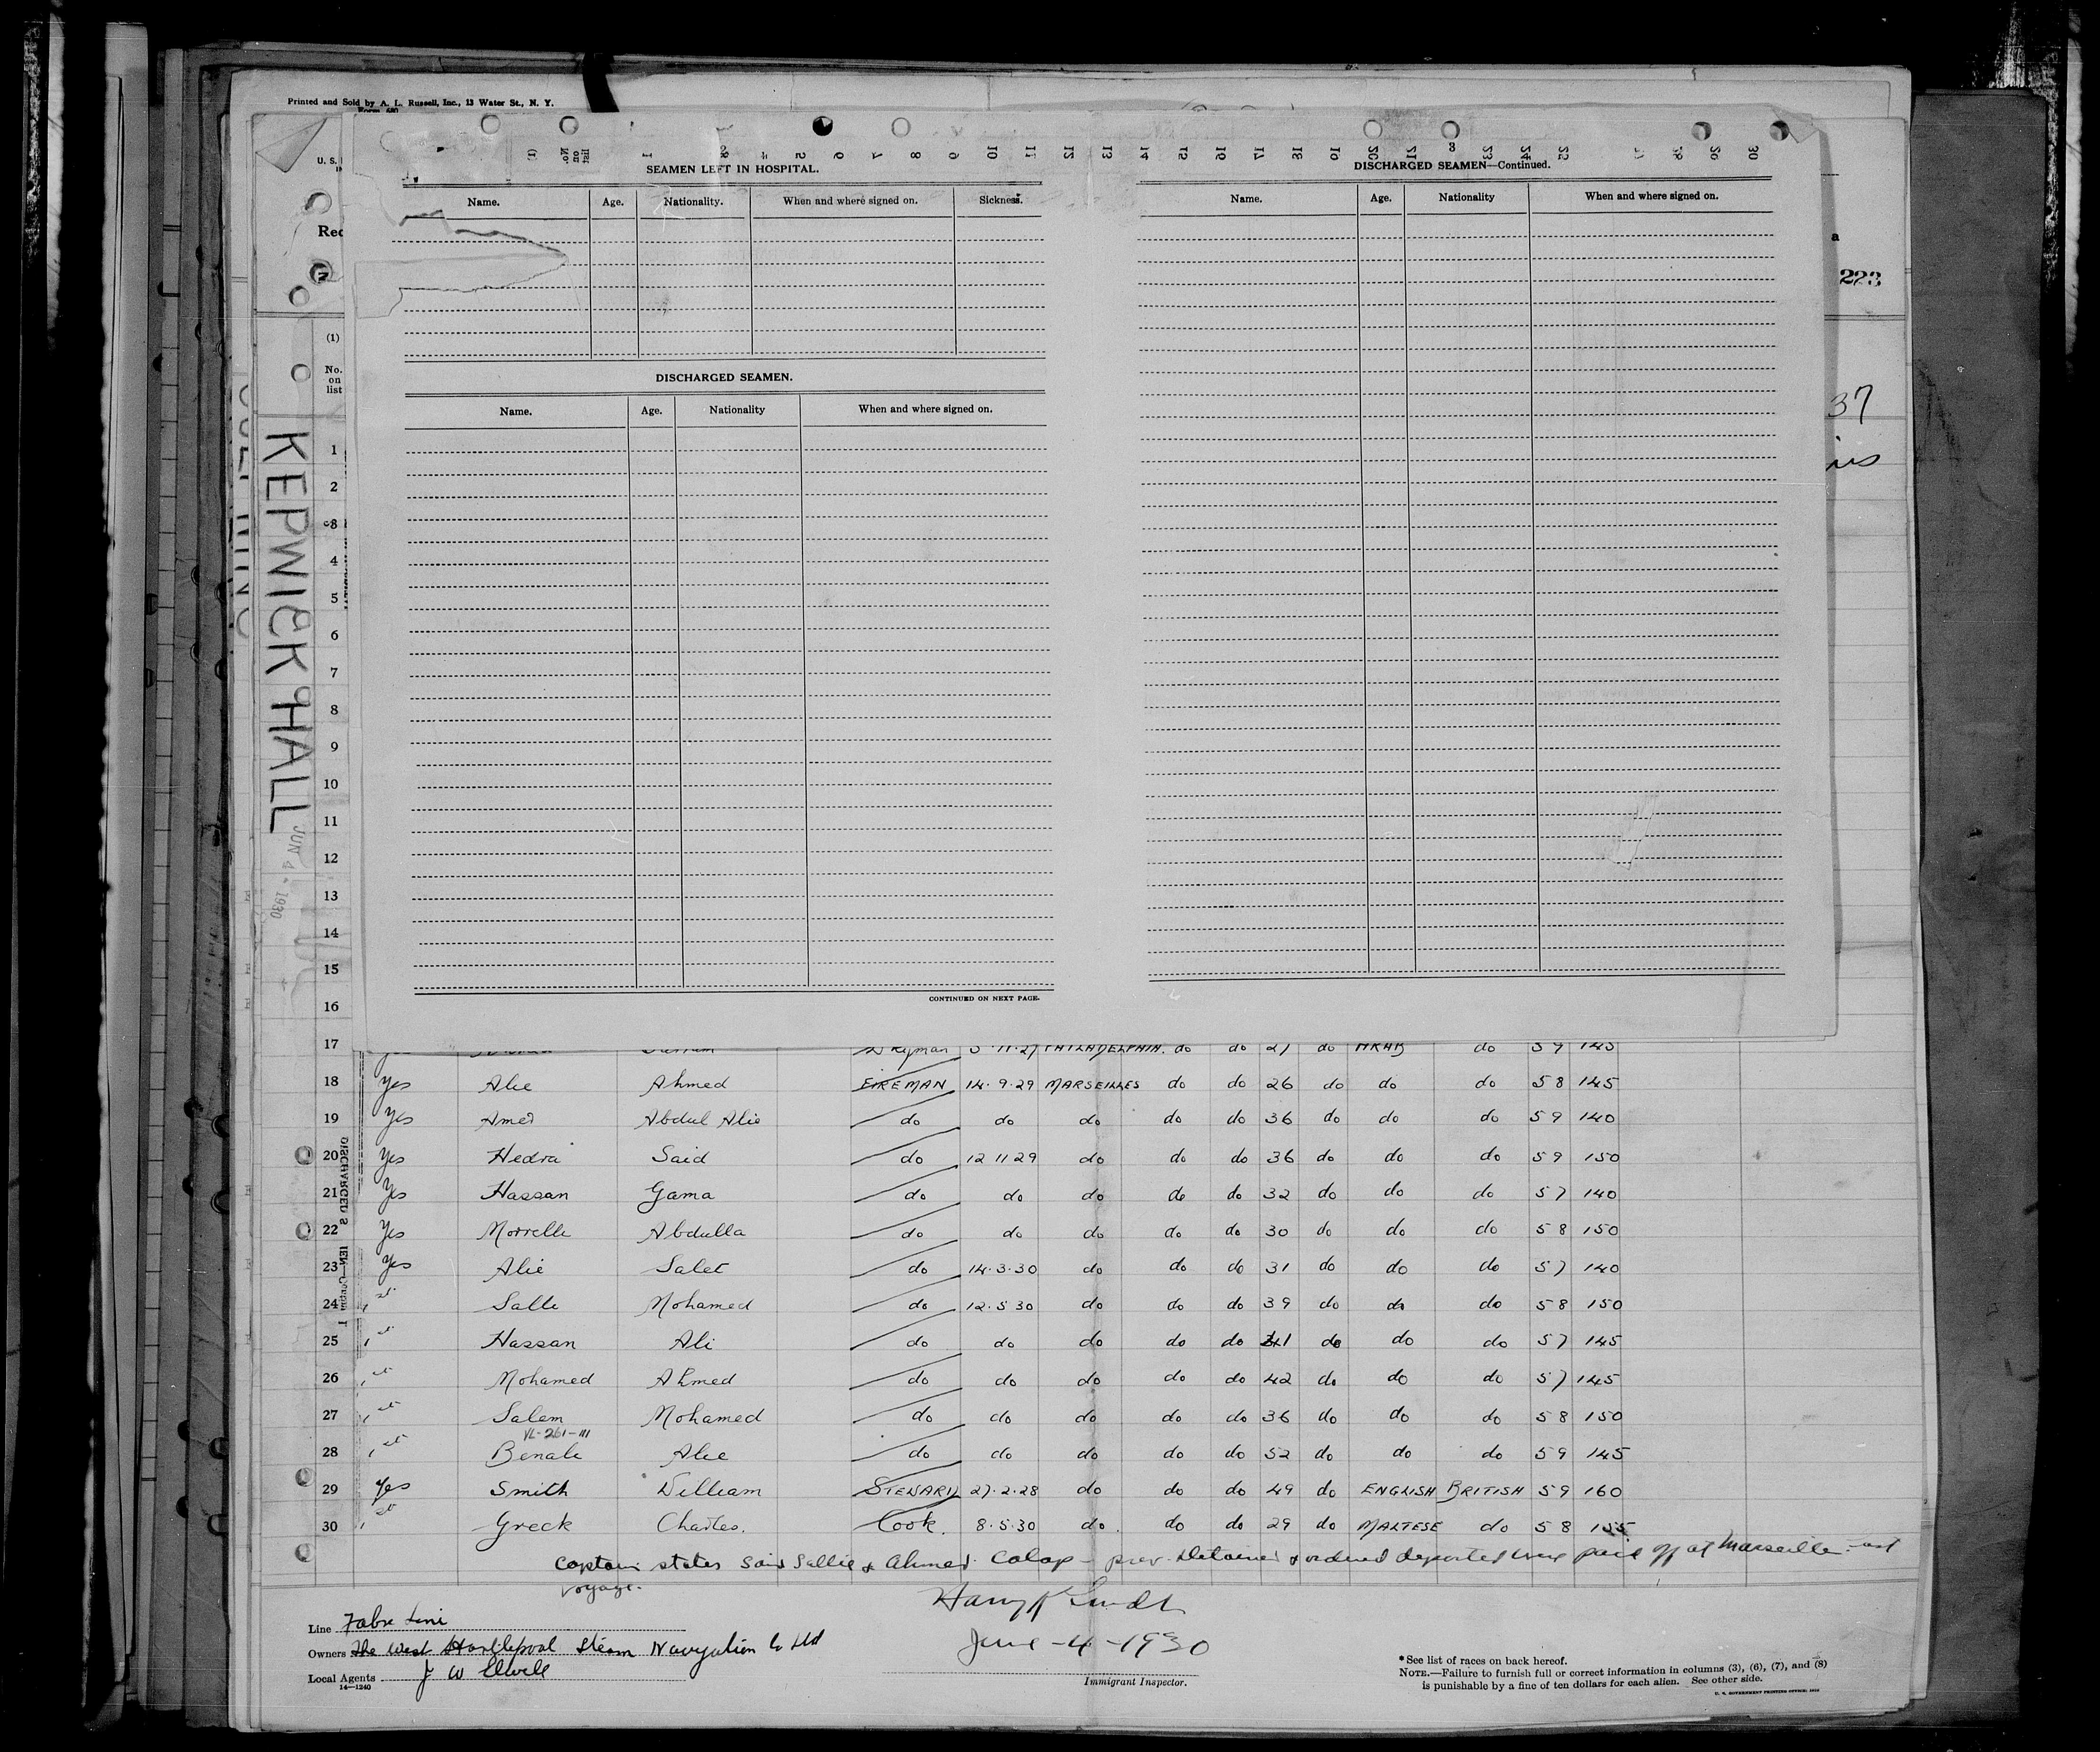 Printed and Sold by A. L. Russell, Inc., 13 Water St., N. Y.
U. S.
SEAMEN LEFT IN HOSPITAL.
Name. Age. Nationality. When and where signed on. Sickness.
DISCHARGED SEAMEN.
Name. Age. Nationality When and where signed on.
CONTINUED ON NEXT PAGE.
DISCHARGED SEAMEN—Continued.
Name. Age. Nationality When and where signed on.
223
37
(1)
No. on list
KEPWICK HALL
JUN 4 1930
1
2
3
4
5
6
7
8
9
10
11
12
13
14
15
16
17 PHILADELPHIA. do do 27 do ARAB do 5 9 145
18 Yes Alie Ahmed FIREMAN 14.9.29 MARSEILLES do do 26 do do do 5 8 145
19 Yes Amed Abdul Alie do do do do do 36 do do do 5 9 140
20 Yes Hedra Said do 12 11 29 do do do 36 do do do 5 9 150
21 Yes Hassan Gama do do do do do 32 do do do 5 7 140
22 Yes Morrelle Abdulla do do do do do 30 do do do 5 8 150
23 Yes Alie Salet do 14.3.30 do do do 31 do do do 5 7 140
24 1st Salle Mohamed do 12.5.30 do do do 39 do do do 5 8 150
25 1st Hassan Ali do do do do do 41 do do do 5 7 145
26 1st Mohamed Ahmed do do do do do 42 do do do 5 7 145
27 1st Salem Mohamed do do do do do 36 do do do 5 8 150
VL-261-111
28 1st Benale Alee do do do do do 52 do do do 5 9 145
29 Yes Smith William STEWARD 27.2.28 do do do 49 do ENGLISH BRITISH 5 9 160
30 1st Greck Charles. Cook. 8.5.30 do. do do 29 do MALTESE do 5 8 155
Captain states Said Sallie & Ahmed Calap - prev. Detained & ordered deported were paid off at Marseille last
voyage.
Line Fabre Line
Owners The West Hartlepool Steam Navigation Co Ltd
Local Agents J W Elwell
14—1240
June-4-1930
Immigrant Inspector.
* See list of races on back hereof.
NOTE.—Failure to furnish full or correct information in columns (3), (6), (7), and (8)
is punishable by a fine of ten dollars for each alien. See other side.